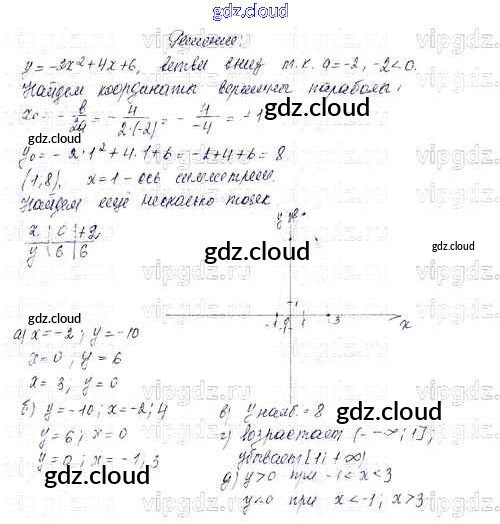 gdz.cloud
Решение:
y=-2x²+4x+6, ветви вниз т.к. a=-2, -2<0.
Найдем координаты вершины параболы:
x₀=-в/2a=-4/2·(-2)=-4/-4=1
gdz.cloud
y₀=-2·1²+4·1+6=-2+4+6=8
gdz.cloud
(1,8), x=1-ось симметрии.
gdz.cloud
Найдем ещё несколько точек
x | 0 | +2
y | 6 | 6
y 8
gdz.cloud
gdz.cloud
1
-1 0 1 3 x
gdz.cloud
а) x=-2; y=-10
x=0; y=6
x=3, y=0
gdz.cloud
б) y=-10; x=-2; 4
y=6; x=0
y=0; x=-1, 3
gdz.cloud
в) y наиб.=8
г) возрастает (-∞; 1];
убывает [1; +∞)
д) y>0 при -1<x<3
y<0 при x<-1; x>3
gdz.cloud
gdz.cloud